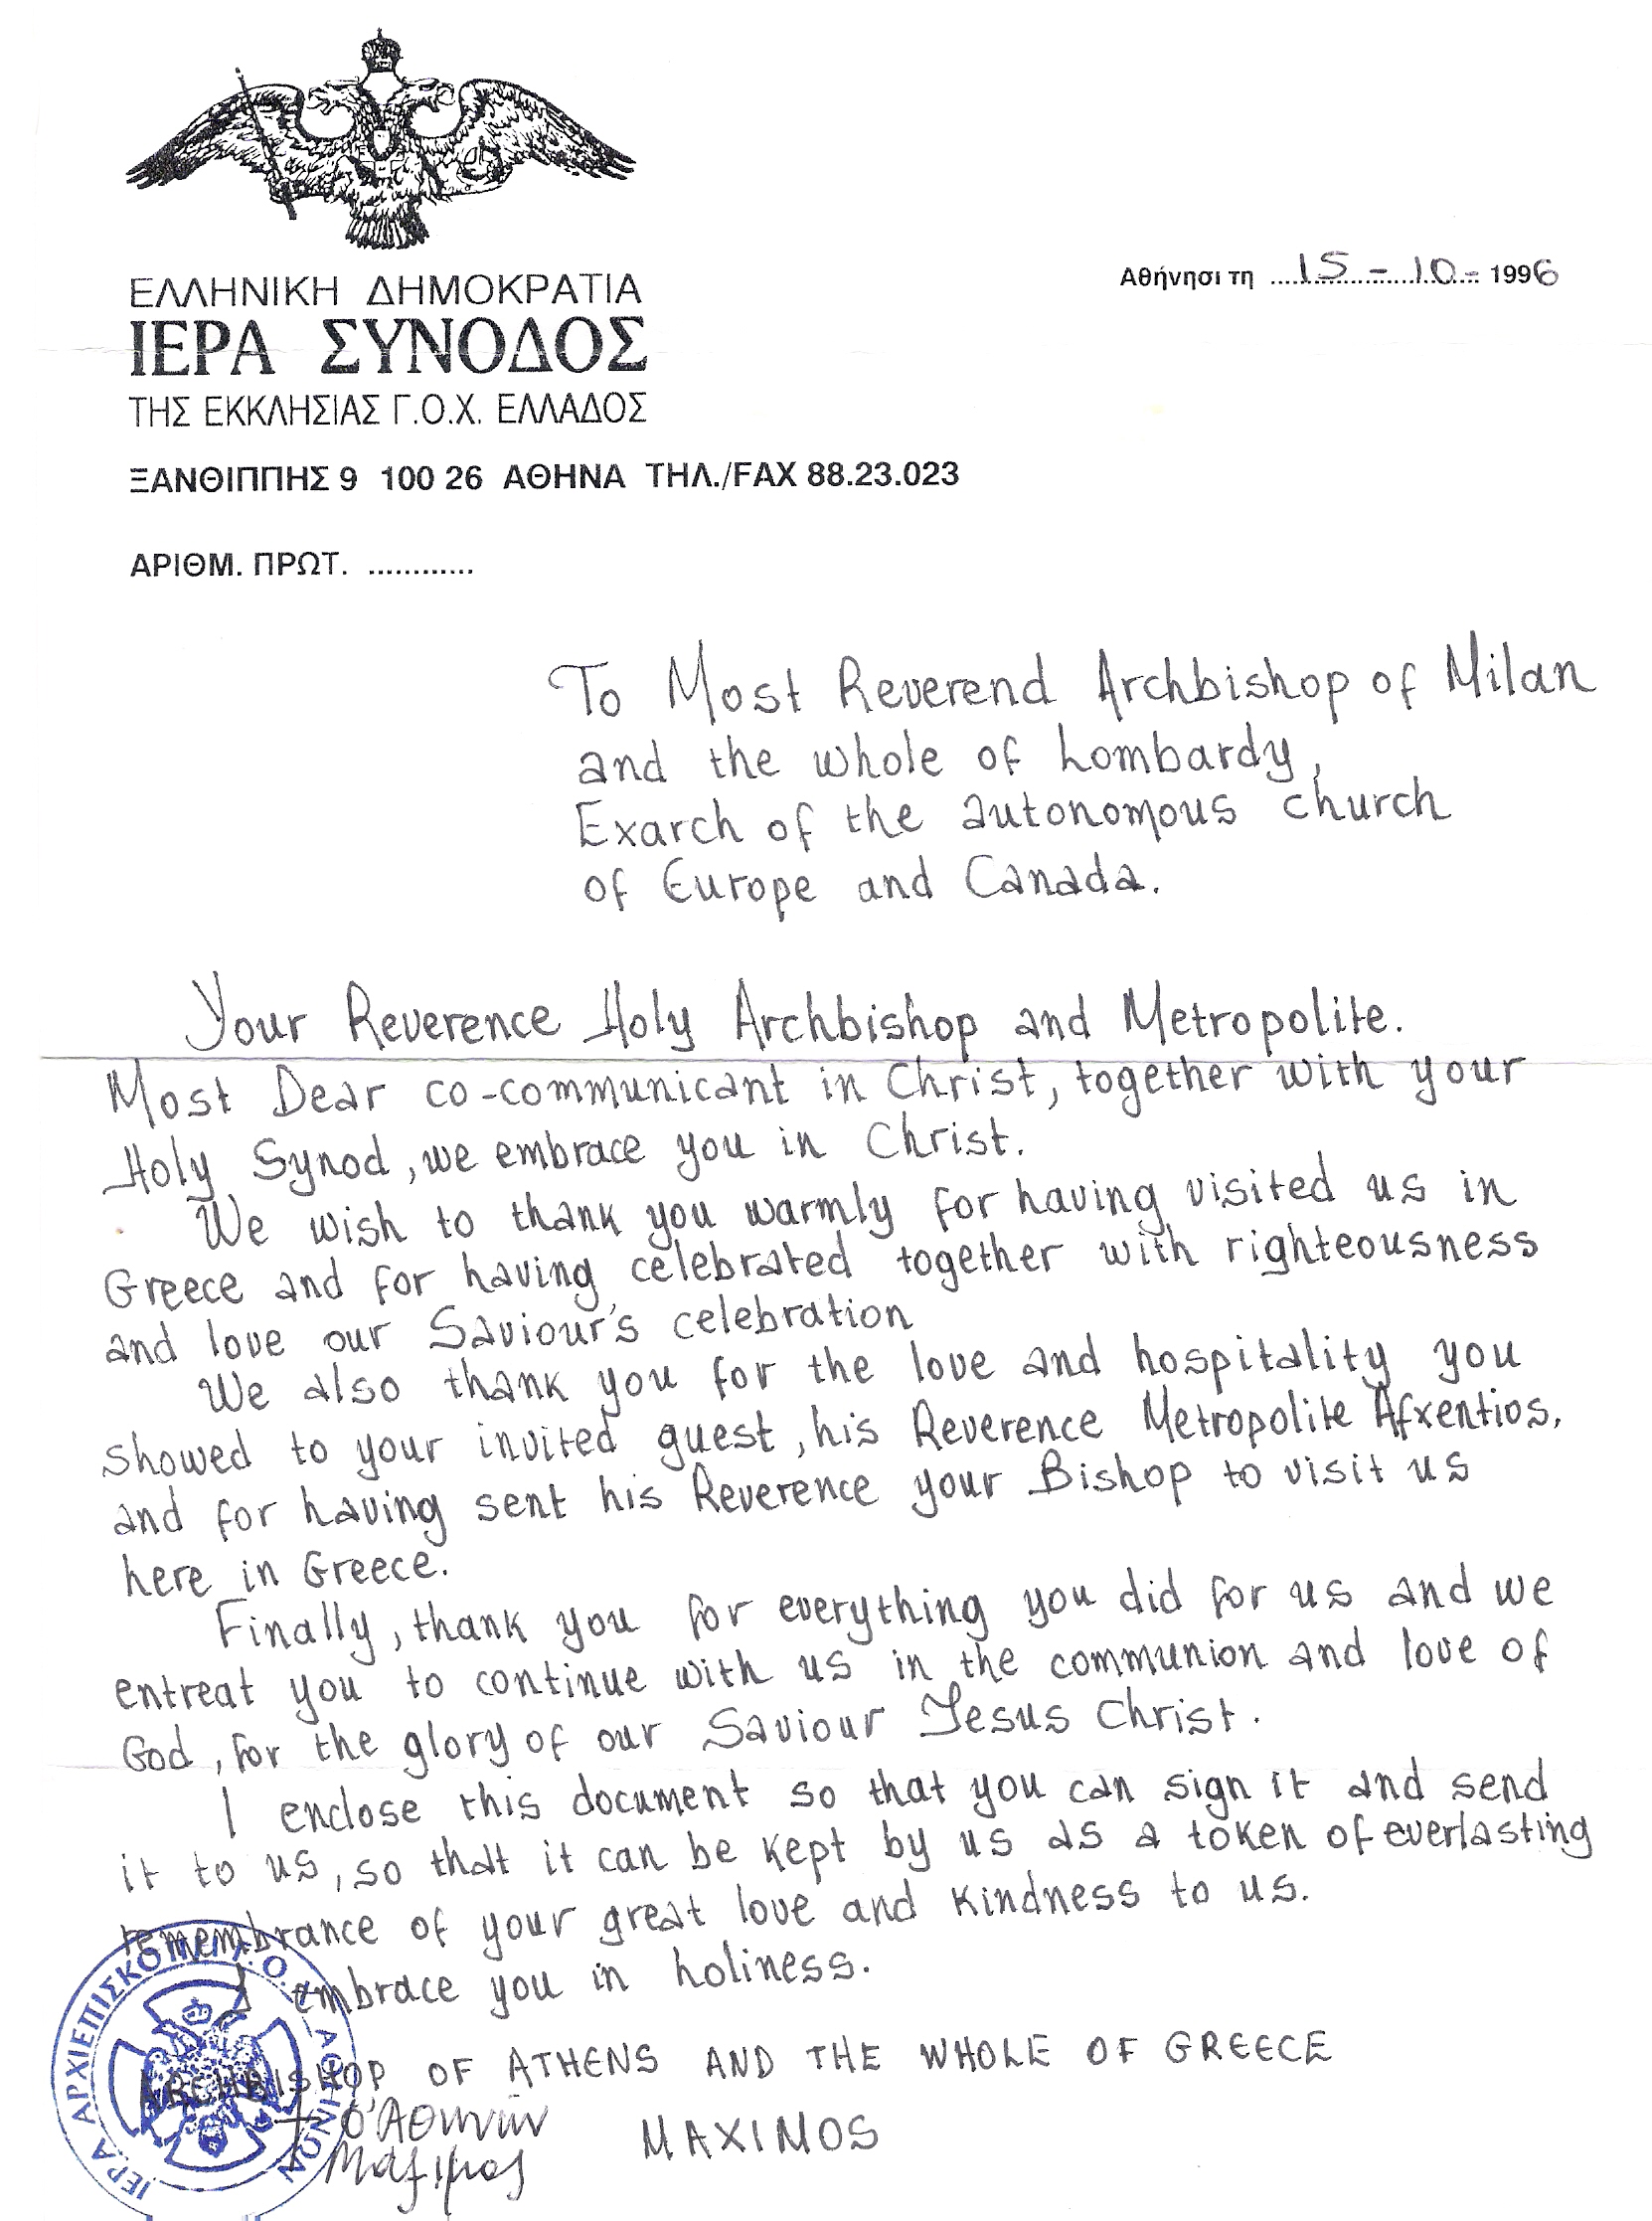 ΕΛΛΗΝΙΚΗ ΔΗΜΟΚΡΑΤΙΑ
ΙΕΡΑ ΣΥΝΟΔΟΣ
ΤΗΣ ΕΚΚΛΗΣΙΑΣ Γ.Ο.Χ. ΕΛΛΑΔΟΣ
ΞΑΝΘΙΠΠΗΣ 9 100 26 ΑΘΗΝΑ ΤΗΛ./FAX 88.23.023
ΑΡΙΘΜ. ΠΡΩΤ. ............
Αθήνησι τη ....15 - 10 - 1996
To Most Reverend Archbishop of Milan
and the whole of Lombardy,
Exarch of the autonomous church
of Europe and Canada.
Your Reverence Holy Archbishop and Metropolite.
Most Dear co-communicant in Christ, together with your
Holy Synod, we embrace you in Christ.
We wish to thank you warmly for having visited us in
Greece and for having celebrated together with righteousness
and love our Saviour's celebration
We also thank you for the love and hospitality you
showed to your invited guest, his Reverence Metropolite Afxentios,
and for having sent his Reverence your Bishop to visit us
here in Greece.
Finally, thank you for everything you did for us and we
entreat you to continue with us in the communion and love of
God, for the glory of our Saviour Jesus Christ.
I enclose this document so that you can sign it and send
it to us, so that it can be kept by us as a token of everlasting
remembrance of your great love and kindness to us.
I embrace you in holiness.
ARCHBISHOP OF ATHENS AND THE WHOLE OF GREECE
† ὁ Ἀθηνῶν
Μάξιμος
MAXIMOS
ΙΕΡΑ ΑΡΧΙΕΠΙΣΚΟΠΗ Γ.Ο.Χ. ΑΘΗΝΩΝ